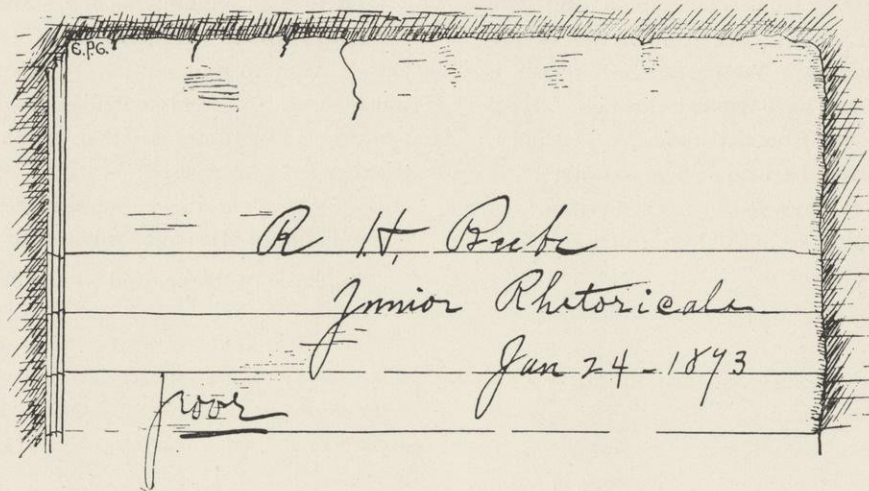 E.P.G.
R H, Beebe
Junior Rhetoricals
Jan 24 - 1893
poor